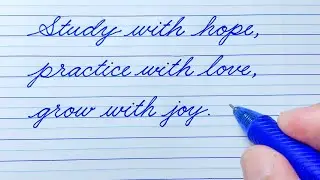 Study with hope,
practice with love,
grow with joy.